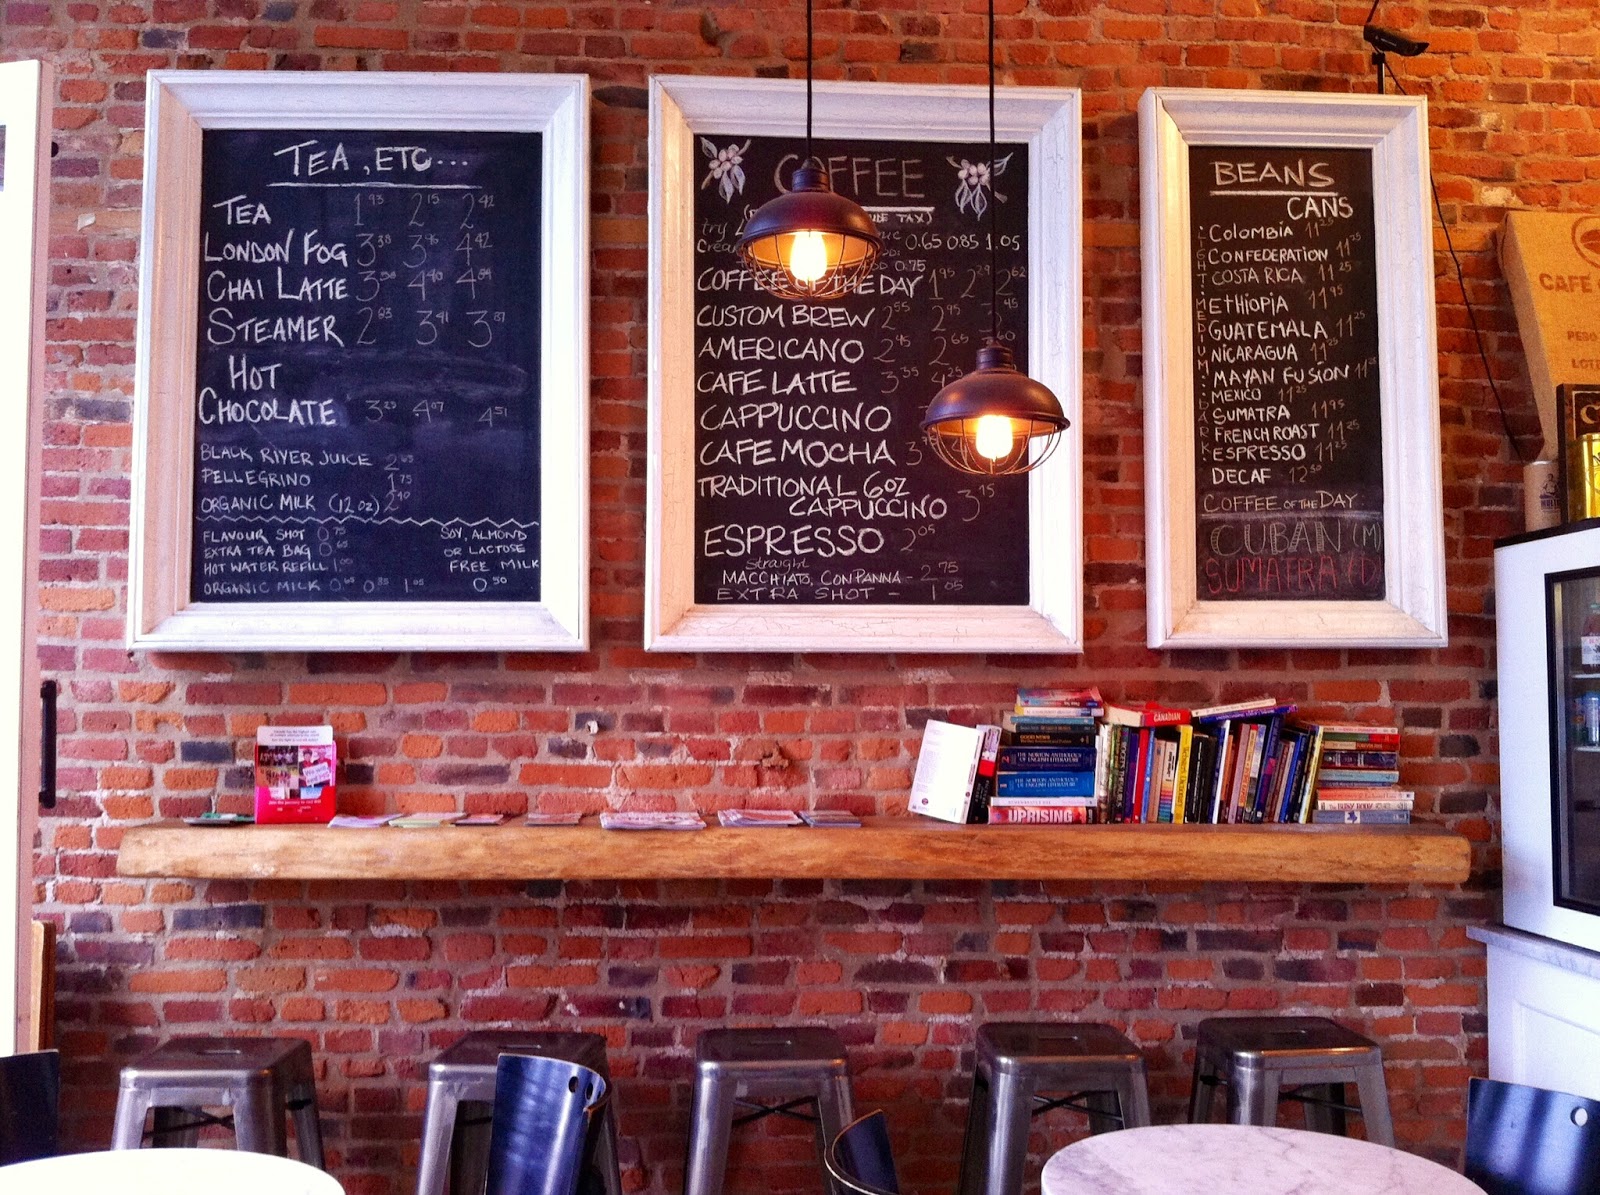 TEA, ETC...
TEA 1.93 2.15 2.42
LONDON FOG 3.38 3.96 4.42
CHAI LATTE
STEAMER 2.83 3.41 3.87
HOT
CHOCOLATE 3.23 4.07 4.51
BLACK RIVER JUICE 2.65
PELLEGRINO 1.75
ORGANIC MILK (12 oz) 2.40
FLAVOUR SHOT 0.75
EXTRA TEA BAG 0.65
HOT WATER REFILL 1.00
ORGANIC MILK 0.65 0.85 1.05
SOY, ALMOND
OR LACTOSE
FREE MILK
0.50
COFFEE
TAX)
try
0.65 0.85 1.05
0.75
COFFEE OF THE DAY 1.95 2.29 2.62
CUSTOM BREW 2.55 2.95
AMERICANO 2.45 2.65
CAFE LATTE 3.35 4.25
CAPPUCCINO
CAFE MOCHA
TRADITIONAL 6oz
CAPPUCCINO 3.75
ESPRESSO 2.05
straight
MACCHIATO, CON PANNA - 2.75
EXTRA SHOT - 1.05
BEANS
CANS
LIGHT·MEDIUM·DARK
Colombia 11.25
CONFEDERATION 11.25
COSTA RICA 11.25
ETHIOPIA 11.95
GUATEMALA 11.25
NICARAGUA 11.25
MAYAN FUSION 11.25
MEXICO 11.25
SUMATRA 11.95
FRENCH ROAST 11.25
ESPRESSO 11.25
DECAF 12.50
COFFEE OF THE DAY:
CUBAN (M)
SUMATRA (D)
CAFE
PESO
LOTE
CANADIAN
GOOD NEWS
THE NORTON ANTHOLOGY
OF ENGLISH LITERATURE
THE NORTON ANTHOLOGY
OF ENGLISH LITERATURE
UPRISING